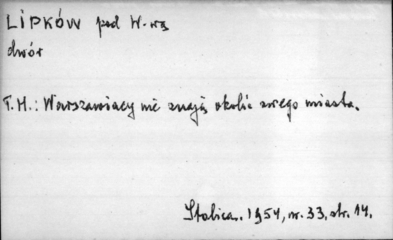 LIPKÓW pod W-wą
dwór
T.H.: Warszawiacy nie znają okolic swego miasta.
Stolica. 1954, nr. 33, str. 14.